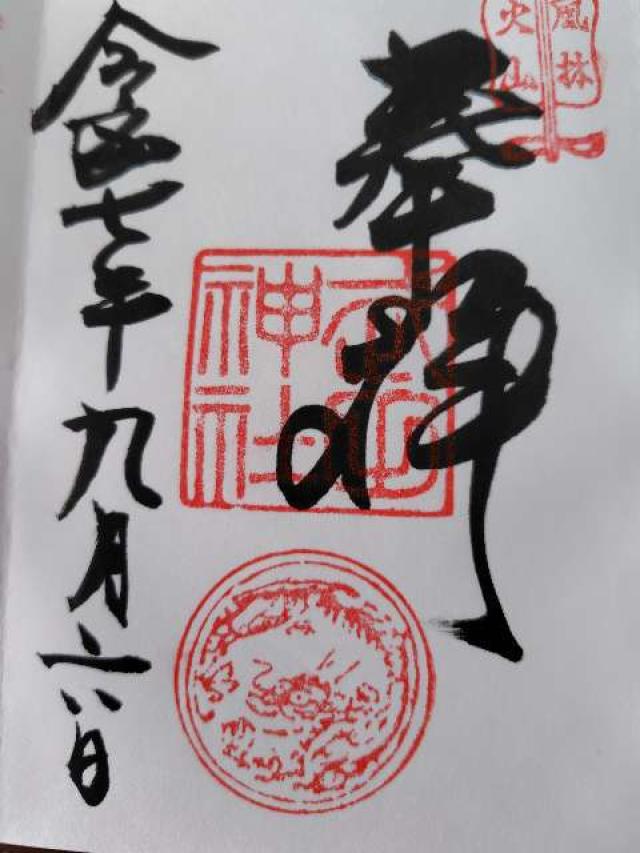 風林
火山
奉拝
神社
令和七年九月六日